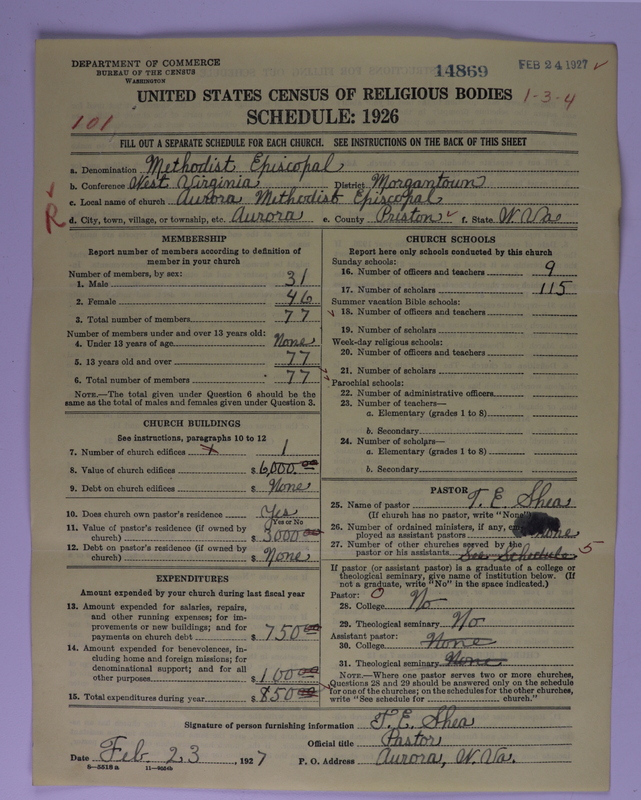 DEPARTMENT OF COMMERCE
BUREAU OF THE CENSUS
WASHINGTON
14869
FEB 24 1927
UNITED STATES CENSUS OF RELIGIOUS BODIES
1-3-4
101
SCHEDULE: 1926
FILL OUT A SEPARATE SCHEDULE FOR EACH CHURCH. SEE INSTRUCTIONS ON THE BACK OF THIS SHEET
a. Denomination Methodist Episcopal
b. Conference West Virginia District Morgantown
c. Local name of church Aurora Methodist Episcopal
R
d. City, town, village, or township, etc. Aurora e. County Priston f. State W. Va
MEMBERSHIP
Report number of members according to definition of
member in your church
Number of members, by sex:
1. Male 31
2. Female 46
3. Total number of members 77
Number of members under and over 13 years old:
4. Under 13 years of age None
5. 13 years old and over 77
6. Total number of members 77
NOTE.—The total given under Question 6 should be the
same as the total of males and females given under Question 3.
CHURCH BUILDINGS
See instructions, paragraphs 10 to 12
7. Number of church edifices 1
8. Value of church edifices $ 6,000.00
9. Debt on church edifices $ None
10. Does church own pastor's residence Yes
Yes or No
11. Value of pastor's residence (if owned by
church) $ 3000.00
12. Debt on pastor's residence (if owned by
church) $ None
EXPENDITURES
Amount expended by your church during last fiscal year
13. Amount expended for salaries, repairs,
and other running expenses; for im-
provements or new buildings; and for
payments on church debt $ 750.00
14. Amount expended for benevolences, in-
cluding home and foreign missions; for
denominational support; and for all
other purposes $ 100.00
15. Total expenditures during year $ 850.00
CHURCH SCHOOLS
Report here only schools conducted by this church
Sunday schools:
16. Number of officers and teachers 9
17. Number of scholars 115
Summer vacation Bible schools:
18. Number of officers and teachers
19. Number of scholars
Week-day religious schools:
20. Number of officers and teachers
21. Number of scholars
Parochial schools:
22. Number of administrative officers
23. Number of teachers—
a. Elementary (grades 1 to 8)
b. Secondary
24. Number of scholars—
a. Elementary (grades 1 to 8)
b. Secondary
PASTOR
25. Name of pastor T. E. Shea
(If church has no pastor, write "None")
26. Number of ordained ministers, if any, em-
ployed as assistant pastors None
27. Number of other churches served by the
pastor or his assistants See Schedule 5
If pastor (or assistant pastor) is a graduate of a college or
theological seminary, give name of institution below. (If
not a graduate, write "No" in the space indicated.)
Pastor: 0
28. College No
29. Theological seminary No
Assistant pastor:
30. College None
31. Theological seminary None
NOTE.—Where one pastor serves two or more churches,
Questions 28 and 29 should be answered only on the schedule
for one of the churches; on the schedules for the other churches,
write "See schedule for church."
Signature of person furnishing information T. E. Shea
Official title Pastor
Date Feb. 23, 1927 P. O. Address Aurora, W. Va.